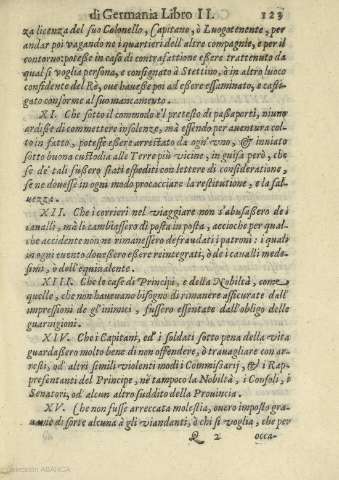 di Germania Libro II. 123
za licenza del suo Colonello, Capitano, ò Luogotenente, per
andar poi vagando ne i quartieri dell'altre compagnie, e per il
contorno: potesse in caso di contrafattione essere trattenuto da
qual si voglia persona, e consignato à Stettino, ò in altro luoco
confidente del Rè, oue hauesse poi ad essere essaminato, e casti
gato conforme al suo mancamento.
XI. Che sotto il commodo è'l pretesto di passaporti, niuno
ardisse di commettere insolenze, mà essendo per auentura col-
to in fatto, potesse essere arrestato da ogn'vno, & inuiato
sotto buona custodia alle Terre più vicine, in guisa però, che
se de' tali fussero stati espediti con lettere di consideratione,
se ne douesse in ogni modo procacciare la restitutione, e la sal-
uezza.
XII. Che i corrieri nel viaggiare non s'abusassero de i
caualli, mà li cambiassero di posta in posta, accioche per qual-
che accidente non ne rimanessero defraudati i patroni: i quali
in ogni euento douessero essere reintegrati, ò de i caualli mede-
simi, ò dell'equiualente.
XIII. Che le case di Principi, e della Nobiltà, come
quelle, che non haueuano bisogno di rimanere assicurate dall'
impressioni de gl'inimici, fussero essentate dall'obligo delle
guarnigioni.
XIV. Che i Capitani, ed i soldati sotto pena della vita
guardassero molto bene di non offendere, ò trauagliare con ar-
resti, od altri simili violenti modi i Commissarij, & i Rap-
presentanti del Principe, nè tampoco la Nobiltà, i Consoli, i
Senatori, od alcun altro suddito della Prouincia.
XV. Che non fusse arreccata molestia, ouero imposto gra-
uame di sorte alcuna à gli viandanti, ò chi si voglia, che per
Q 2 occa-
Colección ABANCA